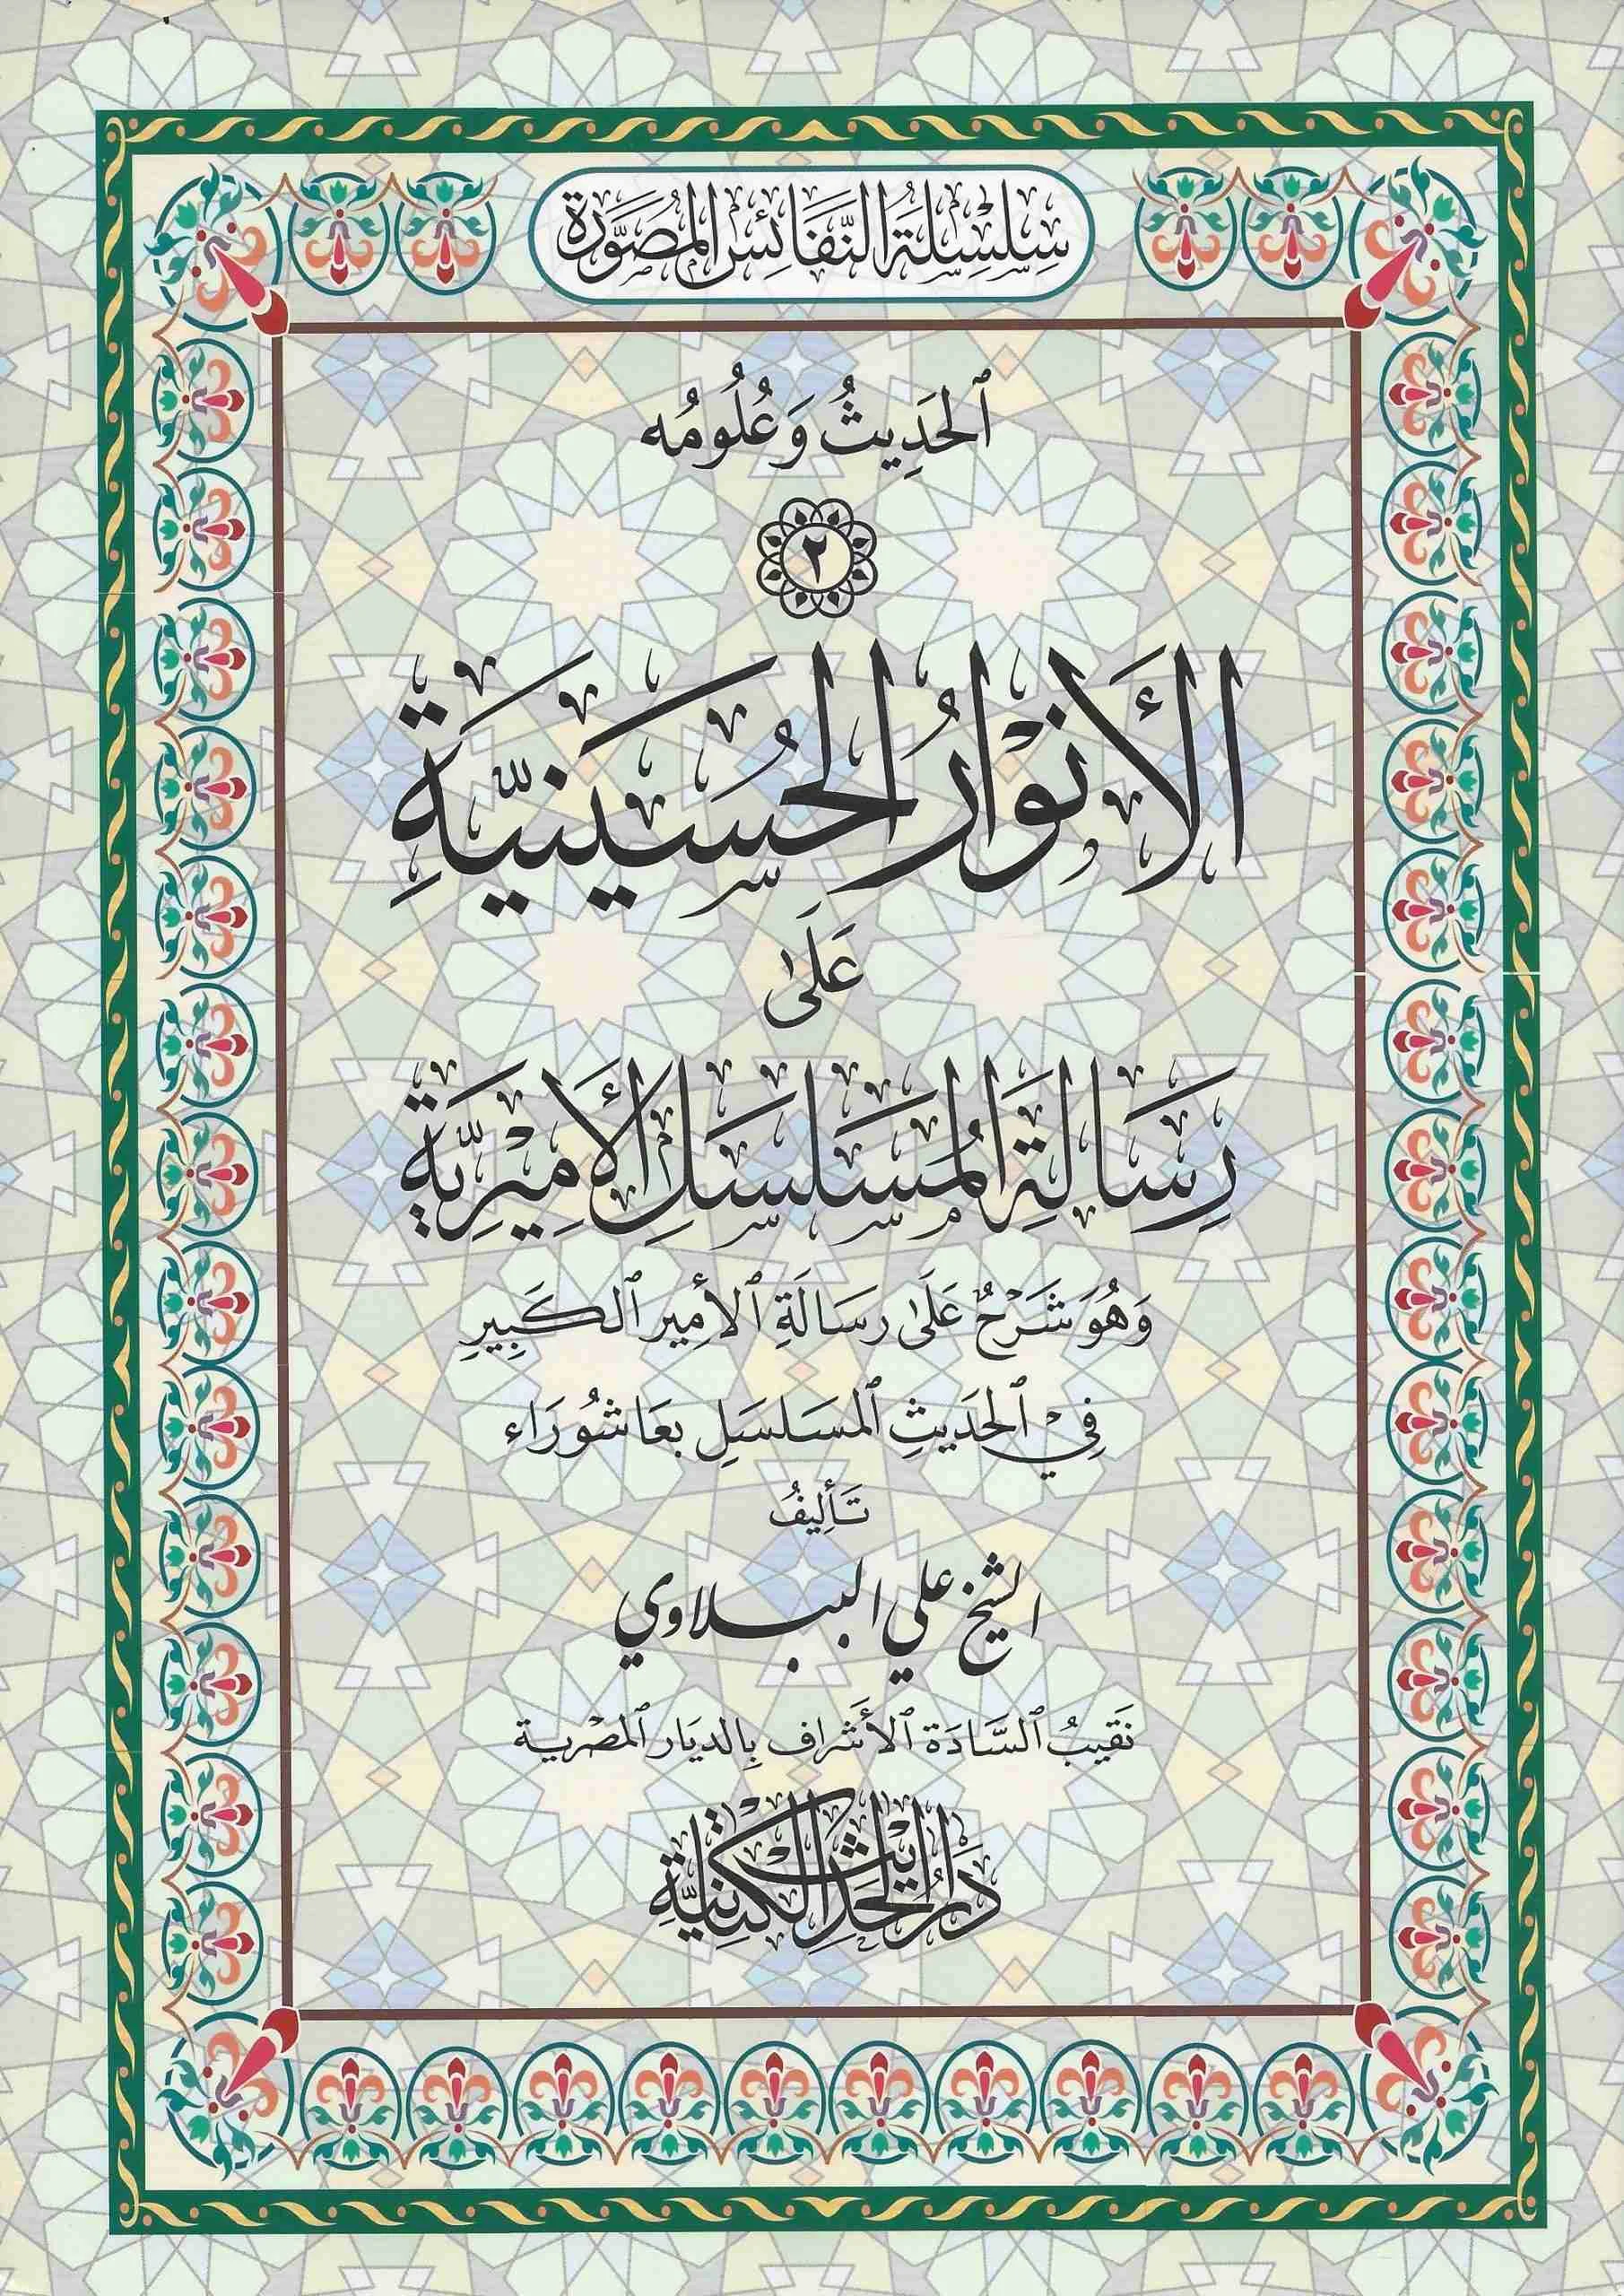 سِلْسِلَةُ النَّفَائِسِ المُصَوَّرَة
ٱلحَدِيثُ وَعُلُومُه
٢
الأَنْوَارُ الحُسَينِيَّةِ
عَلَىٰ
رِسَالَةِ المُسَلسَلِ الأَمِيْرِيَّةِ
وَهُوَ شَرْحٌ عَلَىٰ رسَالَةِ ٱلأمِير ٱلكَبِيرِ
فِيْ ٱلحِدَيثِ ٱلمسَلسَلِ بعَاشُورَاء
تَأليفُ
الشيخ علي الببلاوي
نَقيبُ ٱلسَّادَة ٱلأَشراف بِالديَار ٱلمصْرية
دَارُ الحَدِيْثِ الكَتَّانِيَّةِ